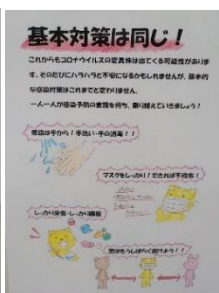 基本対策は同じ！
これからもコロナウイルスの変異株は出てくる可能性がありま
す。そのたびにハラハラと不安になるかもしれませんが、基本的
な感染対策はこれまでと変わりません。
一人一人が感染予防の意識を持ち、乗り越えていきましょう！
感染は手から！手洗い・手の消毒！！
マスクをしっかり！できれば不織布！
しっかり栄養・しっかり睡眠
間はもうしばらく避けよう！！